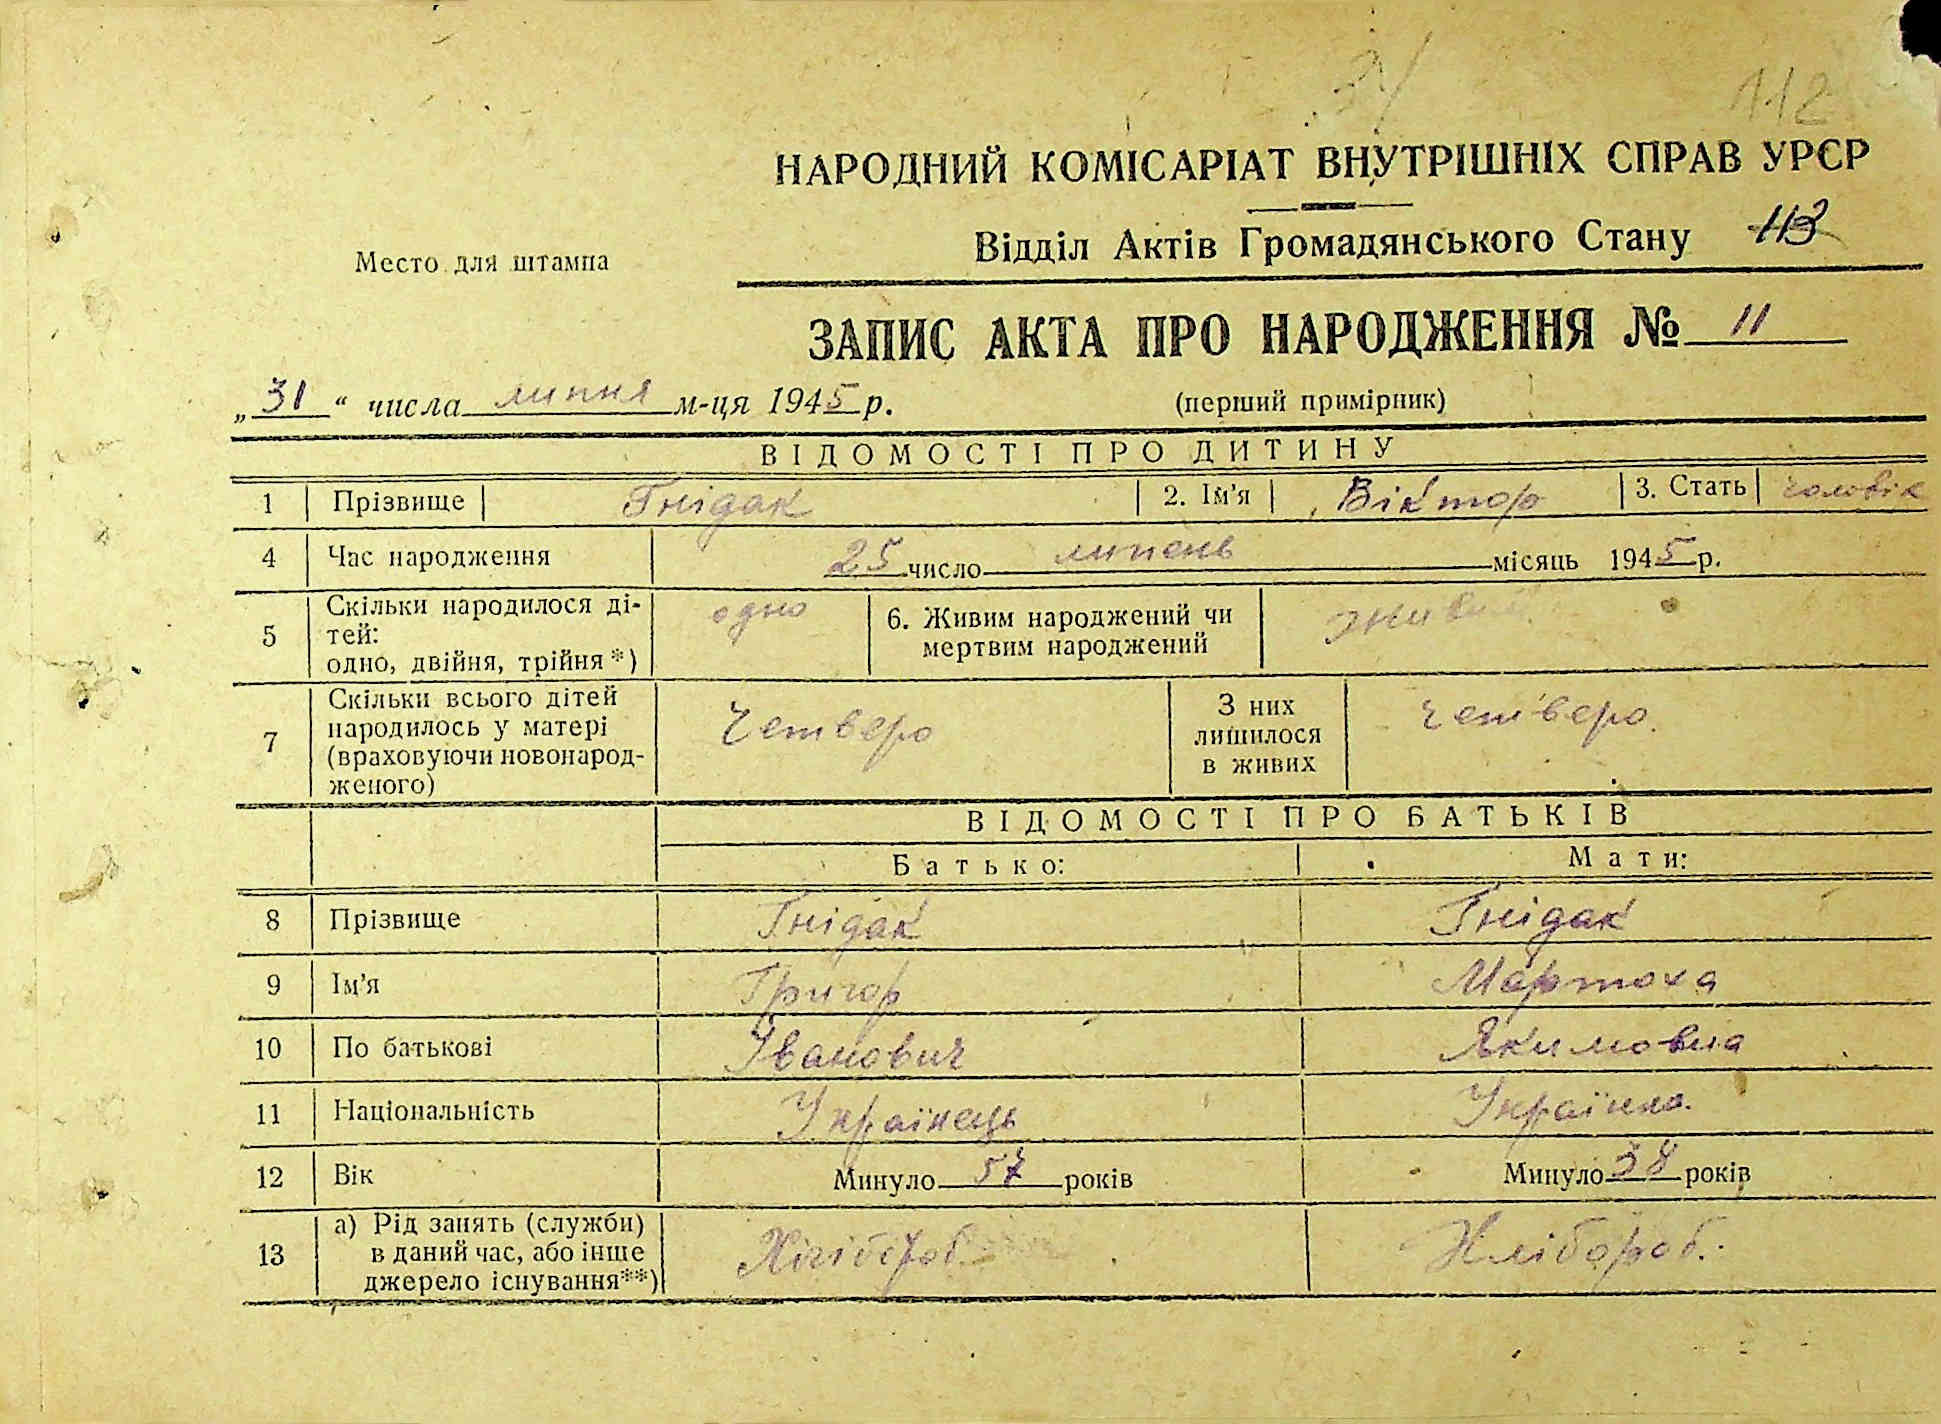 112
НАРОДНИЙ КОМІСАРІАТ ВНУТРІШНІХ СПРАВ УРСР
Место для штампа
Відділ Актів Громадянського Стану 113
ЗАПИС АКТА ПРО НАРОДЖЕННЯ № 11
„31“ числа липня м-ця 1945 р. (перший примірник)
ВІДОМОСТІ ПРО ДИТИНУ
1 Прізвище Гнідак 2. Ім'я Віктор 3. Стать чоловік
4 Час народження 25 число липень місяць 1945 р.
5 Скільки народилося ді-
тей:
одно, двійня, трійня*) одно 6. Живим народжений чи
мертвим народжений живий
7 Скільки всього дітей
народилось у матері
(враховуючи новонарод-
женого) Четверо З них
лишилося
в живих четверо.
ВІДОМОСТІ ПРО БАТЬКІВ
Батько: Мати:
8 Прізвище Гнідак Гнідак
9 Ім'я Григор Мартоха
10 По батькові Іванович Якимовна
11 Національність Українець Українка.
12 Вік Минуло 57 років Минуло 38 років
13 а) Рід занять (служби)
в даний час, або інше
джерело існування**) Хлібороб. Хлібороб.